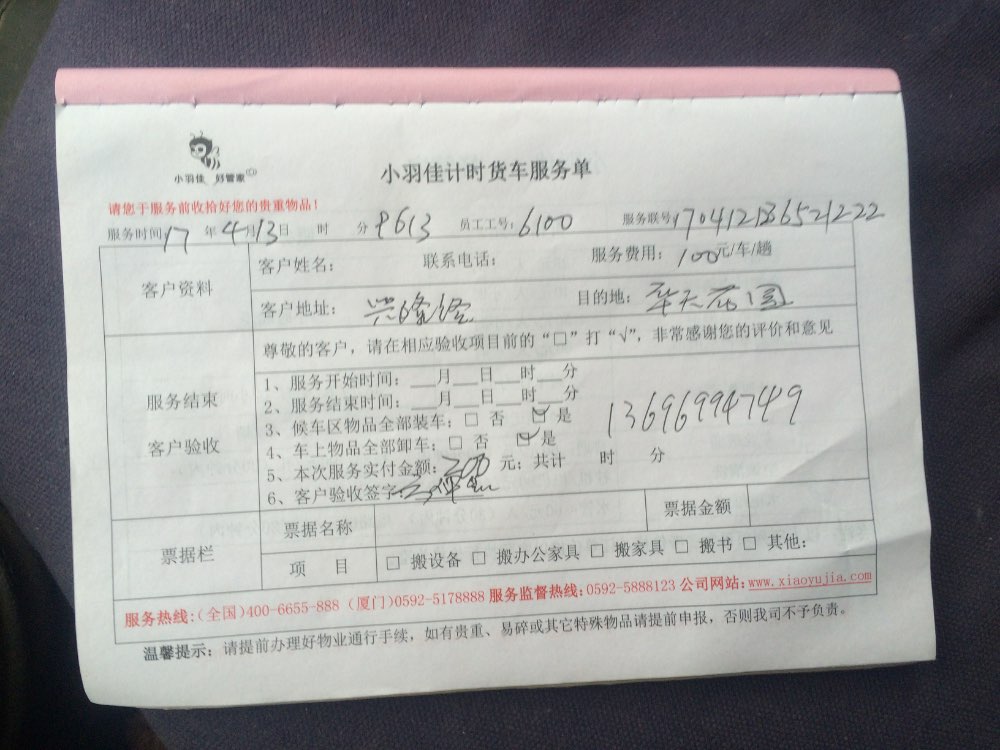 小羽佳 好管家
小羽佳计时货车服务单
请您于服务前收拾好您的贵重物品！
服务时间 17 年 4 月 13 日 时 分 9613 员工工号：6100 服务联号 170412136521222
客户资料
客户姓名： 联系电话： 服务费用：100元/车/趟
客户地址： 目的地：
尊敬的客户，请在相应验收项目前的“□”打“√”，非常感谢您的评价和意见
服务结束
客户验收
1、服务开始时间：___月___日___时___分
2、服务结束时间：___月___日___时___分
3、候车区物品全部装车：□ 否 ☑ 是
4、车上物品全部卸车：□ 否 ☑ 是
13696994749
5、本次服务实付金额： 元；共计 时 分
6、客户验收签字
票据栏
票据名称 票据金额
项 目 □ 搬设备 □ 搬办公家具 □ 搬家具 □ 搬书 □ 其他：
服务热线：(全国)400-6655-888 (厦门)0592-5178888 服务监督热线：0592-5888123 公司网站：www.xiaoyujia.com
温馨提示：请提前办理好物业通行手续，如有贵重、易碎或其它特殊物品请提前申报，否则我司不予负责。